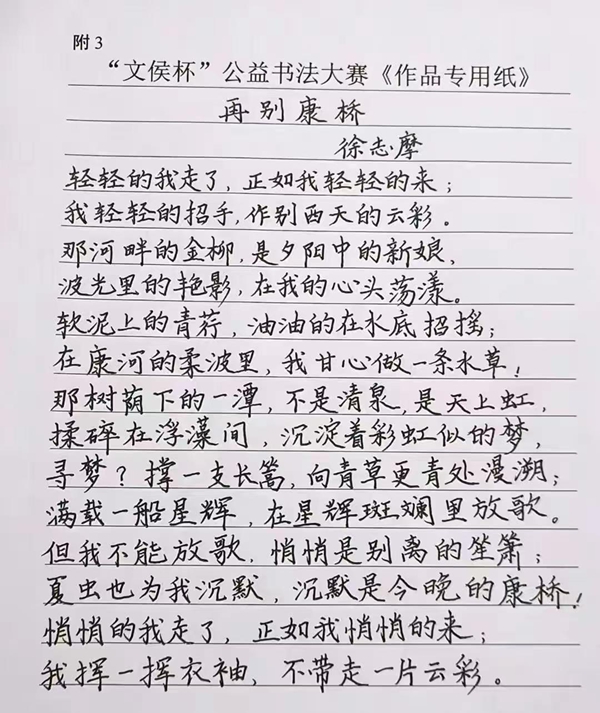 附3
“文侯杯”公益书法大赛《作品专用纸》
再别康桥
徐志摩
轻轻的我走了，正如我轻轻的来；
我轻轻的招手，作别西天的云彩。
那河畔的金柳，是夕阳中的新娘，
波光里的艳影，在我的心头荡漾。
软泥上的青荇，油油的在水底招摇；
在康河的柔波里，我甘心做一条水草！
那树荫下的一潭，不是清泉，是天上虹，
揉碎在浮藻间，沉淀着彩虹似的梦，
寻梦？撑一支长篙，向青草更青处漫溯；
满载一船星辉，在星辉斑斓里放歌。
但我不能放歌，悄悄是别离的笙箫；
夏虫也为我沉默，沉默是今晚的康桥！
悄悄的我走了，正如我悄悄的来；
我挥一挥衣袖，不带走一片云彩。